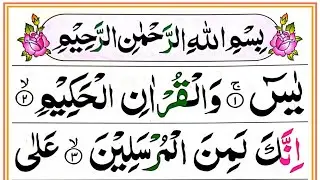 بِسْمِ اللهِ الرَّحْمٰنِ الرَّحِيْمِ
يٰسٓ ۚ ﴿۱﴾ وَالْقُرْاٰنِ الْحَكِيْمِ ۙ ﴿۲﴾
اِنَّكَ لَمِنَ الْمُرْسَلِيْنَ ۙ ﴿۳﴾ عَلٰى